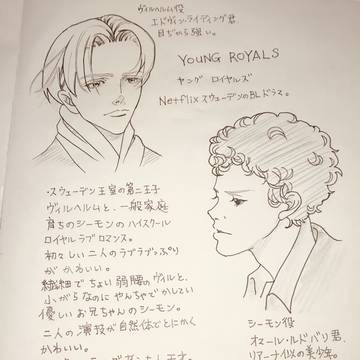 ヴィルヘルム役
エドヴィン・ライディング君。
目ぢから強い。
YOUNG ROYALS
ヤング ロイヤルズ
Netflix スウェーデンのBLドラマ。
・スウェーデン王室の第二王子
ヴィルヘルムと、一般家庭
育ちのシーモンのハイスクール
ロイヤルラブロマンス。
初々しい二人のラブラブっぷり
がかわいい。
繊細でちょい弱腰のヴィルと、
小がらなのにやんちゃでかしてい
優しいお兄ちゃんのシーモン。
二人の演技が自然体でとにかく
かわいい。
シーモン役
オマール・ルドバリ君、
リアーナ似の美少年。